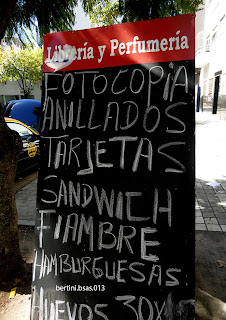 Librería y Perfumería
FOTOCOPIA
ANILLADOS
TARJETAS
SANDWICH
FIAMBRE
bertini.bsas.013
HAMBURGUESAS
HUEVOS 30X